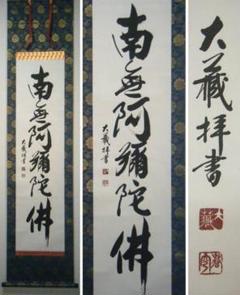 南無阿彌陀佛
大蔵拝書
南無阿彌陀佛
大蔵拝書
大蔵拝書